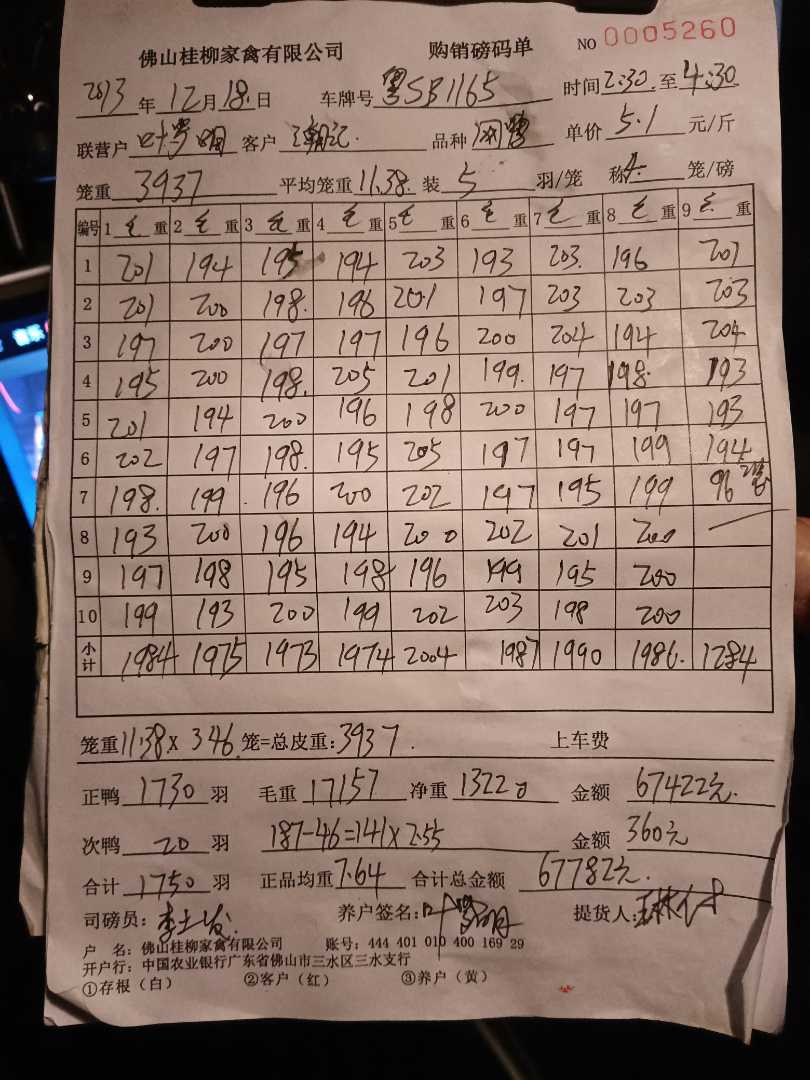 佛山桂柳家禽有限公司 购销磅码单 NO 0005260
2013年12月18日 车牌号 粤SB1165 时间2:30.至4:30
联营户 叶 明 客户 潮记. 品种 单价 5.1 元/斤
笼重 3937 平均笼重11.38. 装 5 羽/笼 称 4. 笼/磅
编号 1 毛 重 2 毛 重 3 毛 重 4 毛 重 5 毛 重 6 毛 重 7 毛 重 8 毛 重 9 毛 重
1 201 194 195 194 203 193 203. 196 201
2 201 200 198. 196 201 197 203 203 203
3 197 200 197 197 196 200 204 194 204
4 195 200 198. 205 201 199. 197 198. 193
5 201 194 200 196 198 200 197 197 193
6 202 197 198. 195 205 197 197 199 194
7 198. 199 196 200 202 197 195 199 96
8 193 200 196 194 200 202 201 200 —
9 197 198 195 198 196 199 195 200
10 199 193 200 199 202 203 198 200
小计 1984 1975 1973 1974 2004 1987 1990 1986. 1284
笼重11.38 x 346.笼=总皮重:3937. 上车费
正鸭 1730 羽 毛重 17157 净重 13220 金额 67422元.
次鸭 20 羽 187-46=141x2.55 金额 360元
合计 1750 羽 正品均重 7.64 合计总金额 67782元.
司磅员: 李 养户签名: 叶 明 提货人:
户 名:佛山桂柳家禽有限公司 账号:444 401 010 400 169 29
开户行:中国农业银行广东省佛山市三水区三水支行
①存根(白) ②客户(红) ③养户(黄)